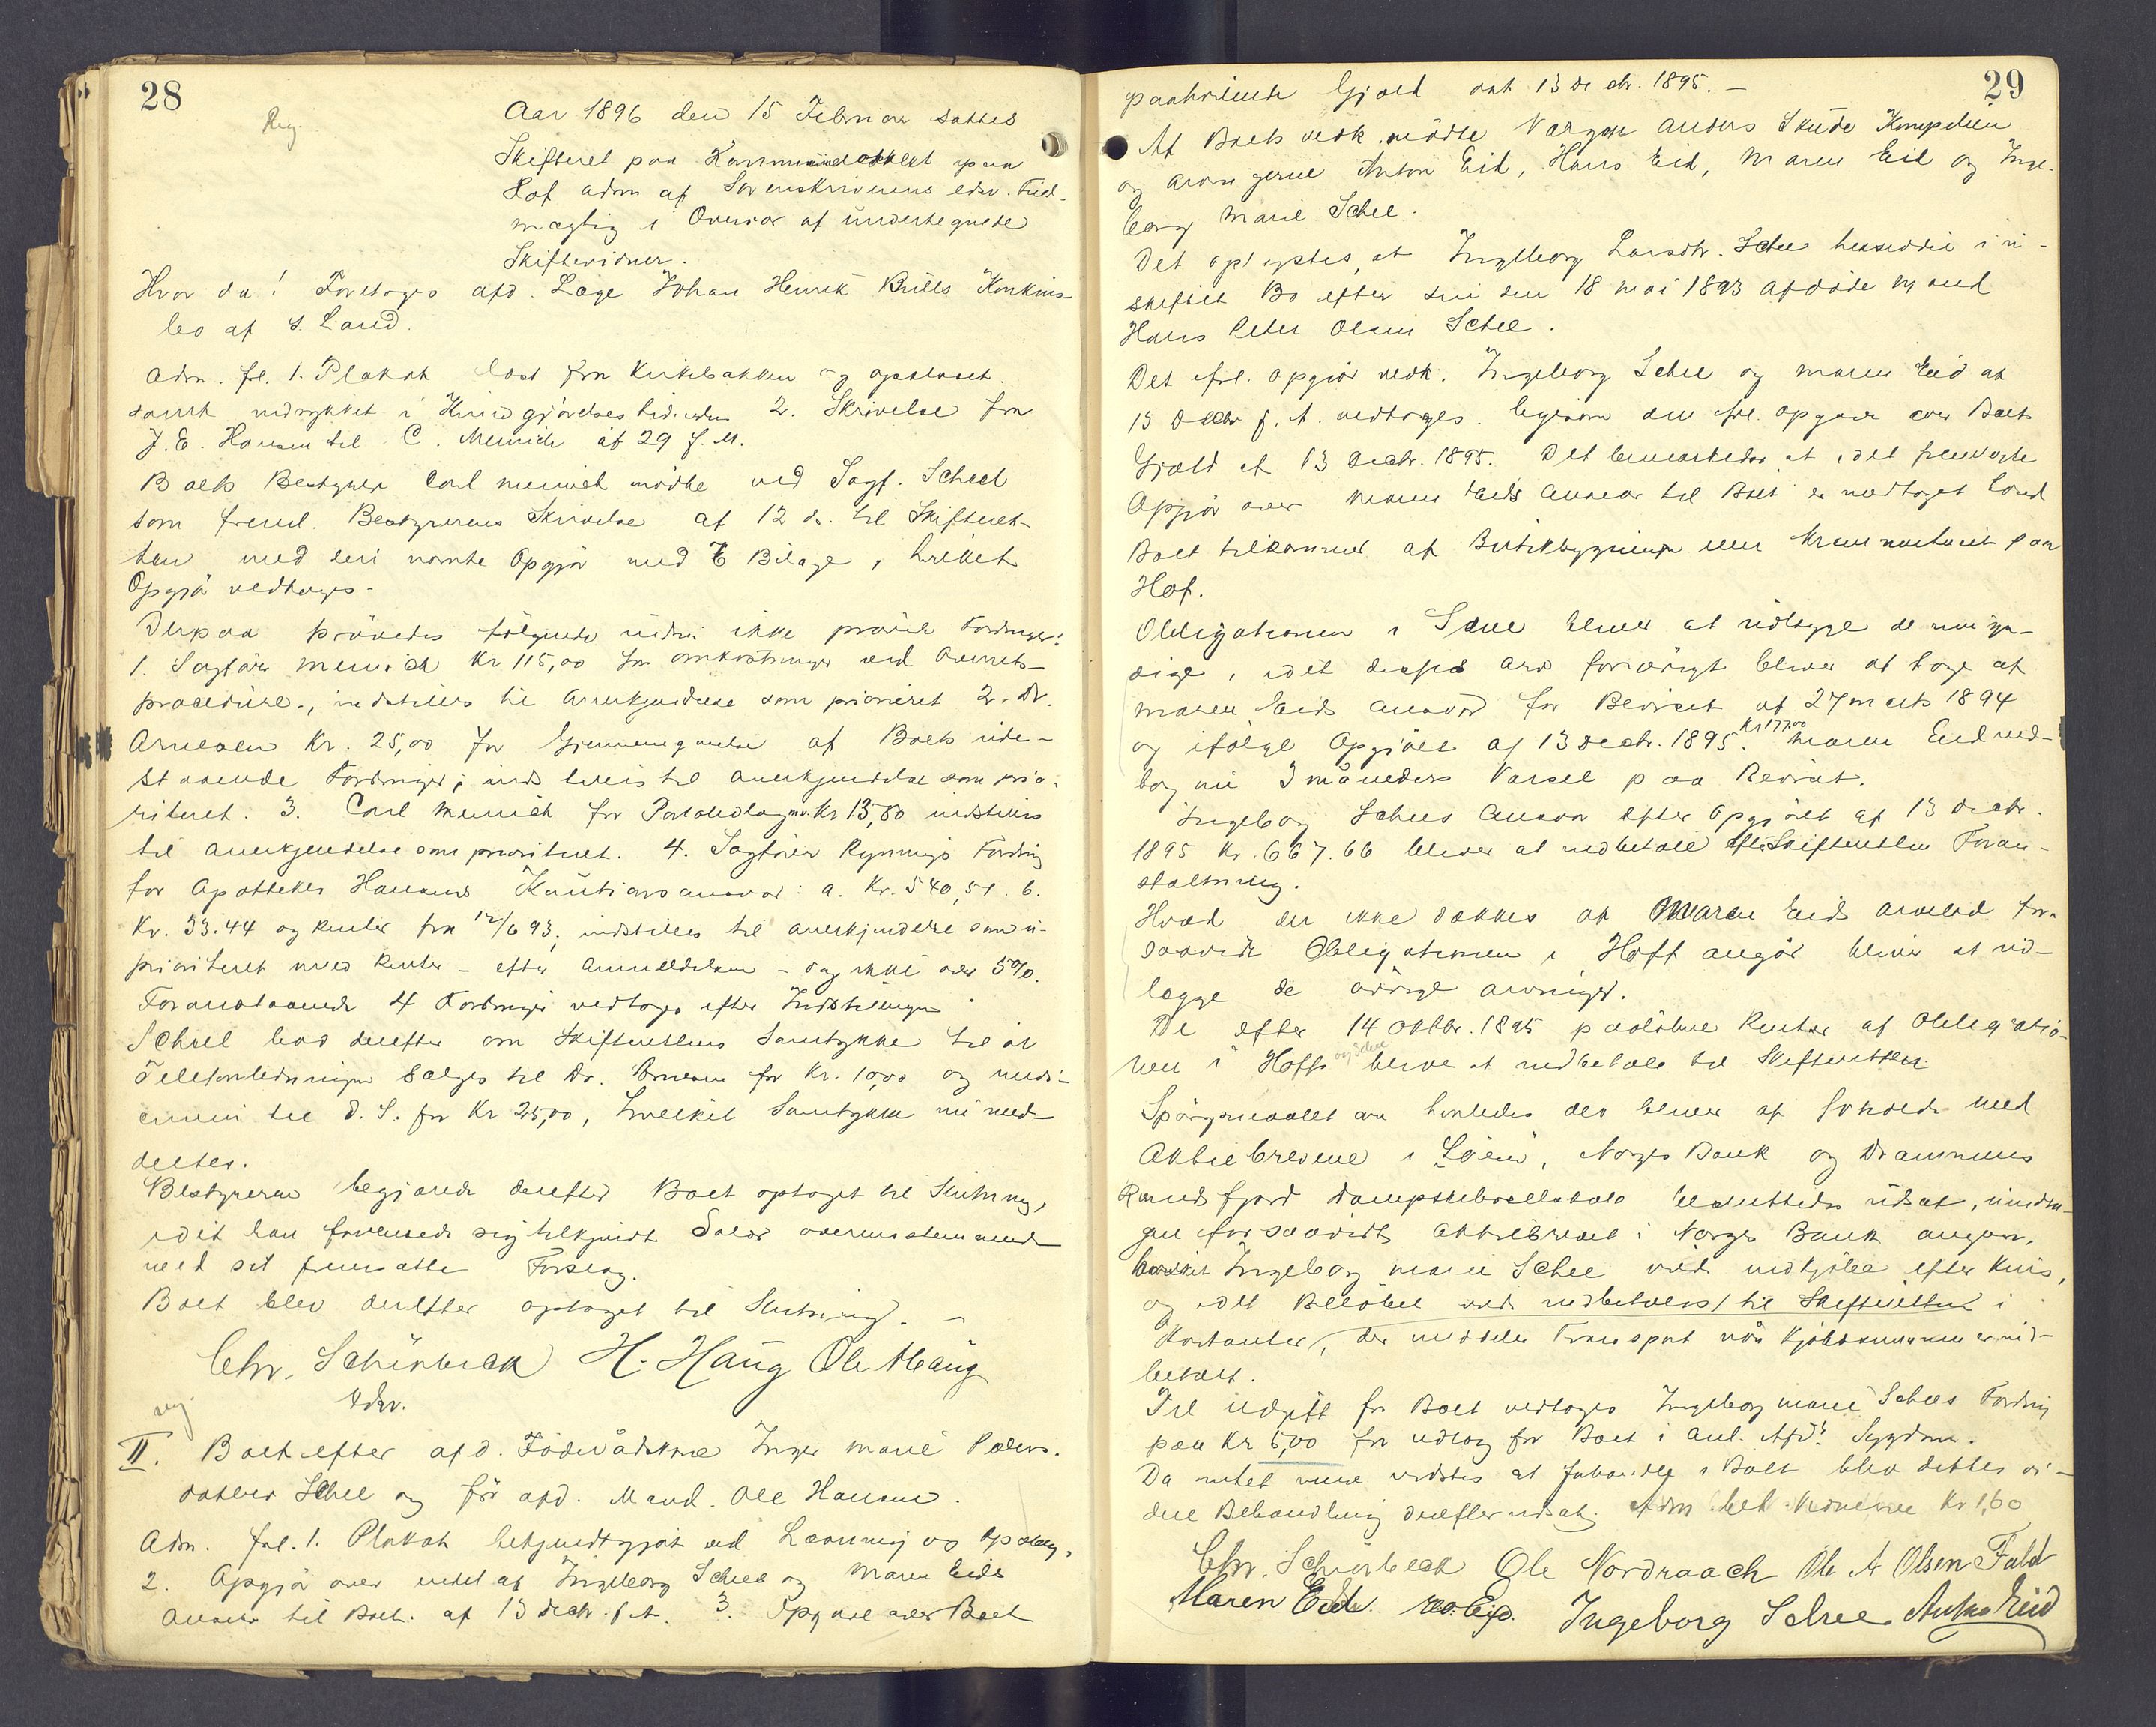 28
Reg.
Aar 1896 den 15 Februar sattes
Skifteret paa Kommunelokalet paa
Hof adm af Sorenskriverens edsv. Fuld-
mægtig i Overvær af undertegnede
Skiftevidner.
Hvor da! Foretoges afd. Læge Johan Henrik Bulls Konkurs-
bo af S. Land.
Adm. frl. 1. Plakat læst fra Kirkebakken og opslaaet
samt indrykket i Kundgjørelsestidenden 2. Skrivelse fra
J. E. Hansen til C. Meinich af 29 f. M.
Boets Bestyrer Carl Meinich mødte ved Sagf. Scheel
som freml. Bestyrerens Skrivelse af 12 ds. til Skifteret-
ten med deri nævnte Opgjør med Bilage, hvilket
Opgjør vedtoges.
Derpaa prøvedes følgende endnu ikke prøvede Fordringer:
1. Sagfører Meinich Kr 115,00 for omkostninger ved Arrest-
procedure, indstilles til Anerkjendelse som prioriteret 2. Dr.
Arnesen Kr. 25,00 for Gjennemgaaelse af Boets ude-
staaende Fordringer; indstilles til anerkjendelse som prio-
riteret. 3. Carl Meinich for Portoudlæg mv. Kr 13,80 indstilles
til anerkjendelse som prioriteret. 4. Sagfører Rynnings Fordring
for Apotheker Hansens Kautionsansvar: a. Kr. 540,51. b.
Kr. 33.44 og Renter fra 12/6 93; indstilles til anerkjendelse som u-
prioriteret med Renter – efter Anmeldelsen – dog ikke over 5%.
Foranstaaende 4 Fordringer vedtoges efter Indstillingen
Scheel bad derefter om Skifterettens Samtykke til at
Telefonledningen sælges til Dr. Arnesen for Kr. 10,00 og medi-
cinen til d. S. for Kr 25,00, hvilket Samtykke nu med-
deltes.
Bestyreren begjærede derefter Boet optaget til Slutning,
idet han formenede sig tilkjendt Salær overensstemmende
med sit fremsatte Forslag.
Boet blev derefter optaget til Slutning. –
Chr. Schiørbeck H. Haug Ole Haug
edsv.
reg
II. Boet efter afd. Føderådskone Inger Marie Peders-
datter Schee og før afd. Mand Ole Hansen.
Adm. frl. 1. Plakat bekjendtgjort ved Læsning og Opslag,
2. Opgjør over endel af Ingeborg Schees og Maren Eids
Ansvar til Boet. af 13 Decbr. f. A. 3. Opgave over Boet
29
paahvilende Gjæld dat 13 Decbr. 1895. –
Af Boets vedk. mødte Værgen Anders Skude Kompelien
og arvingerne Anton Eid, Hans Eid, Maren Eid og Inge-
borg Marie Schee.
Det oplystes, at Ingeborg Larsdtr. Schee hensidder i u-
skiftet Bo efter sin den 18 Mai 1893 afdøde Mand
Hans Peter Olsen Schee.
Det frl. Opgjør vedk. Ingeborg Schee og Maren Eid af
13 Decbr f. A. vedtoges ligesom den frl. opgave over Boets
Gjæld af 13 Decbr. 1895. Det bemærkedes at i det fremlagte
Opgjør over Maren Eids Ansvar til Boet er medtaget hvad
Boet tilkommer af Butikbygningen eller Kramværket paa
Hof.
Obligationen i Schee bliver at udlægge de myn-
dige, idet disses arv forøvrigt bliver at tage af
Maren Eids Ansvar for Beviset af 27 Marts 1894
og ifølge Opgjøret af 13 Decbr. 1895. Kr 177.00 Maren Eid ved-
tog nu 3 måneders Varsel paa Beviset.
Ingeborg Schees Ansvar efter Opgjøret af 13 Decbr.
1895 Kr. 667.66 bliver at indbetale efter Skifterettens Foran-
staltning.
Hvad der ikke dækkes af Maren Eids arvelod for-
saavidt Obligationen i Hoff angår bliver at ud-
lægge de øvrige arvinger.
De efter 14 Oktbr. 1895 paaløbne Renter af Obligatio-
nen i Hoff og Schee bliver at indbetale til Skifteretten
Spørgsmaalet om hvorledes der bliver at forholde med
Aktiebrevene i Løken, Norges Bank og Drammens
Randsfjord Dampskibsselskab besluttedes udsat, undta-
gen forsaavidt aktiebrevet i Norges Bank angaar,
hvilket Ingeborg Marie Schee vilde indkjøbe efter Kurs,
og idet Beløbet vilde indbetales til Skifteretten i
Kontanter, der meddeler Transport når Kjøbesummen er ind-
betalt.
Til udgift for Boet vedtoges Ingeborg Marie Schees Fordring
paa Kr 5,00 for udlæg for Boet i anl. Afd.s Sygdom.
Da intet mere vidstes at forhandle i Boet blev dettes vi-
dere Behandling derefter udsat. Adm. bet. Kr 1,60
Chr. Schiørbeck Ole Nordraach Ole A Olsen Fald
Maren Eid Ingeborg Schee Anton Eid